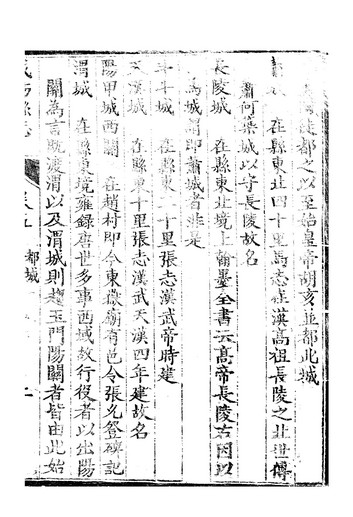 徙都之以至始皇帝胡亥並都此城
城 在縣東北四十里馬志在漢高祖長陵之北世傳
蕭何築城以守長陵故名
長陵城 在縣東北境上翰墨全書云高帝長陵古因以
為城謂即蕭城者非是
斗城 在縣東二十里張志漢武帝時建
天漢城 在縣東十里張志漢武天漢四年建故名
陽甲城西關 在趙村即今東嶽廟有邑令張允登碑記
渭城 在縣東境雍錄唐世多事西域故行役者以出陽
關為言既渡渭以及渭城則趨玉門陽關者皆由此始
卷五 都城